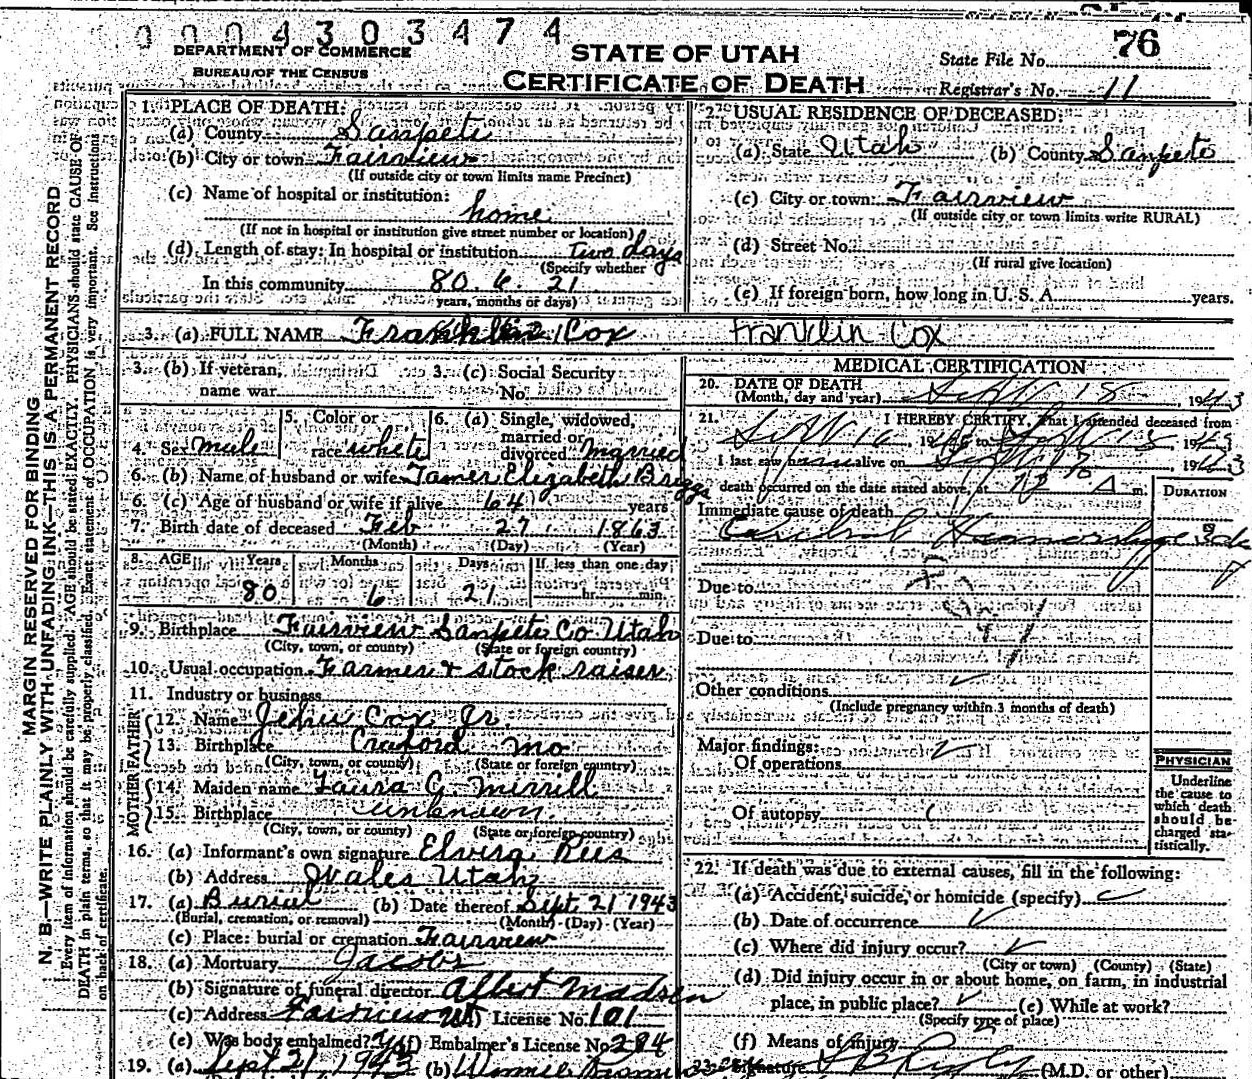 0004303474
DEPARTMENT OF COMMERCE
BUREAU OF THE CENSUS
STATE OF UTAH
CERTIFICATE OF DEATH
State File No. 76
Registrar's No. 11
MARGIN RESERVED FOR BINDING
N. B.—WRITE PLAINLY WITH UNFADING INK—THIS IS A PERMANENT RECORD
Every item of information should be carefully supplied. AGE should be stated EXACTLY. PHYSICIANS should state CAUSE OF
DEATH in plain terms, so that it may be properly classified. Exact statement of OCCUPATION is very important. See instructions
on back of certificate.
1. PLACE OF DEATH:
(a) County Sanpete
(b) City or town Fairview
(If outside city or town limits name Precinct)
(c) Name of hospital or institution:
home
(If not in hospital or institution give street number or location)
(d) Length of stay: In hospital or institution two days
(Specify whether
In this community 80. 6. 21
years, months or days)
2. USUAL RESIDENCE OF DECEASED:
(a) State Utah (b) County Sanpete
(c) City or town Fairview
(If outside city or town limits write RURAL)
(d) Street No.
(If rural give location)
(e) If foreign born, how long in U. S. A. years.
3. (a) FULL NAME Franklin Cox Franklin Cox
3. (b) If veteran, name war
3. (c) Social Security No.
4. Sex male
5. Color or race white
6. (a) Single, widowed, married or divorced married
6. (b) Name of husband or wife Tamer Elizabeth Briggs
6. (c) Age of husband or wife if alive 64 years
7. Birth date of deceased Feb 27 1863
(Month) (Day) (Year)
8. AGE Years Months Days If less than one day
80 6 21 hr. min.
9. Birthplace Fairview Sanpete Co Utah
(City, town, or county) (State or foreign country)
10. Usual occupation Farmer & stock raiser
11. Industry or business
FATHER
12. Name Jehu Cox Jr.
13. Birthplace Craford Mo
(City, town, or county) (State or foreign country)
MOTHER
14. Maiden name Laura G. Merrill
15. Birthplace unknown.
(City, town, or county) (State or foreign country)
16. (a) Informant's own signature Elvira Rees
(b) Address Wales Utah
17. (a) Burial (b) Date thereof Sept. 21 1943
(Burial, cremation, or removal) (Month) (Day) (Year)
(c) Place: burial or cremation Fairview
18. (a) Mortuary Jacobs
(b) Signature of funeral director Albert Madsen
(c) Address Fairview Ut License No. 101
(e) Was body embalmed? Yes (f) Embalmer's License No 284
19. (a) Sept 21 1943 (b)
MEDICAL CERTIFICATION
20. DATE OF DEATH
(Month, day and year) Sept 18, 1943
21. I HEREBY CERTIFY, that I attended deceased from
Sept 16, 1943 to Sept 18 1943
I last saw him alive on Sept 1943
death occurred on the date stated above, at 12 A m.
DURATION
Immediate cause of death
Cerebral Hemorrhage
Due to
Due to
Other conditions
(Include pregnancy within 3 months of death)
Major findings:
Of operations
Of autopsy
PHYSICIAN
Underline
the cause to
which death
should be
charged sta-
tistically.
22. If death was due to external causes, fill in the following:
(a) Accident, suicide, or homicide (specify)
(b) Date of occurrence
(c) Where did injury occur?
(City or town) (County) (State)
(d) Did injury occur in or about home, on farm, in industrial
place, in public place? (e) While at work?
(Specify type of place)
(f) Means of injury
23. Signature (M.D. or other)